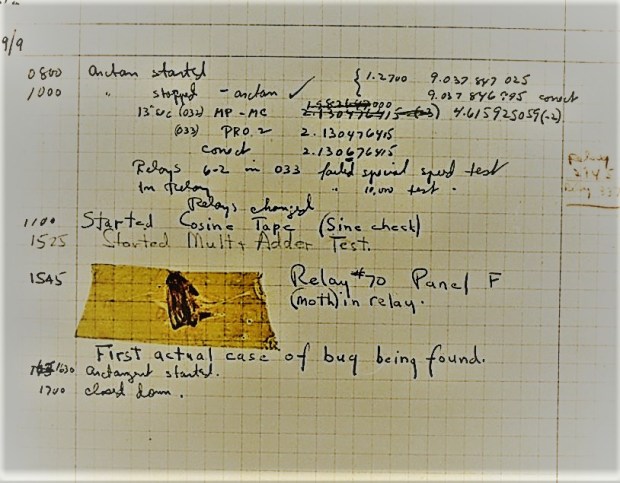 9/9
0800 arctan started { 1.2700 9.037 847 025
1000 " stopped - arctan ✓ 9.037 846 995 correct
13" sec (032) MP - MC 2.130476415 4.615925059(-2)
(033) PRO. 2 2.130476415
correct 2.130676415
Relays 6-2 in 033 failed special speed test
In Relay " 10,000 test .
Relays changed
1100 Started Cosine Tape (Sine check)
1525 Started Mult + Adder Test.
1545 Relay #70 Panel F
(moth) in relay.
First actual case of bug being found.
1630 arctangent started.
1700 closed down.
Relay